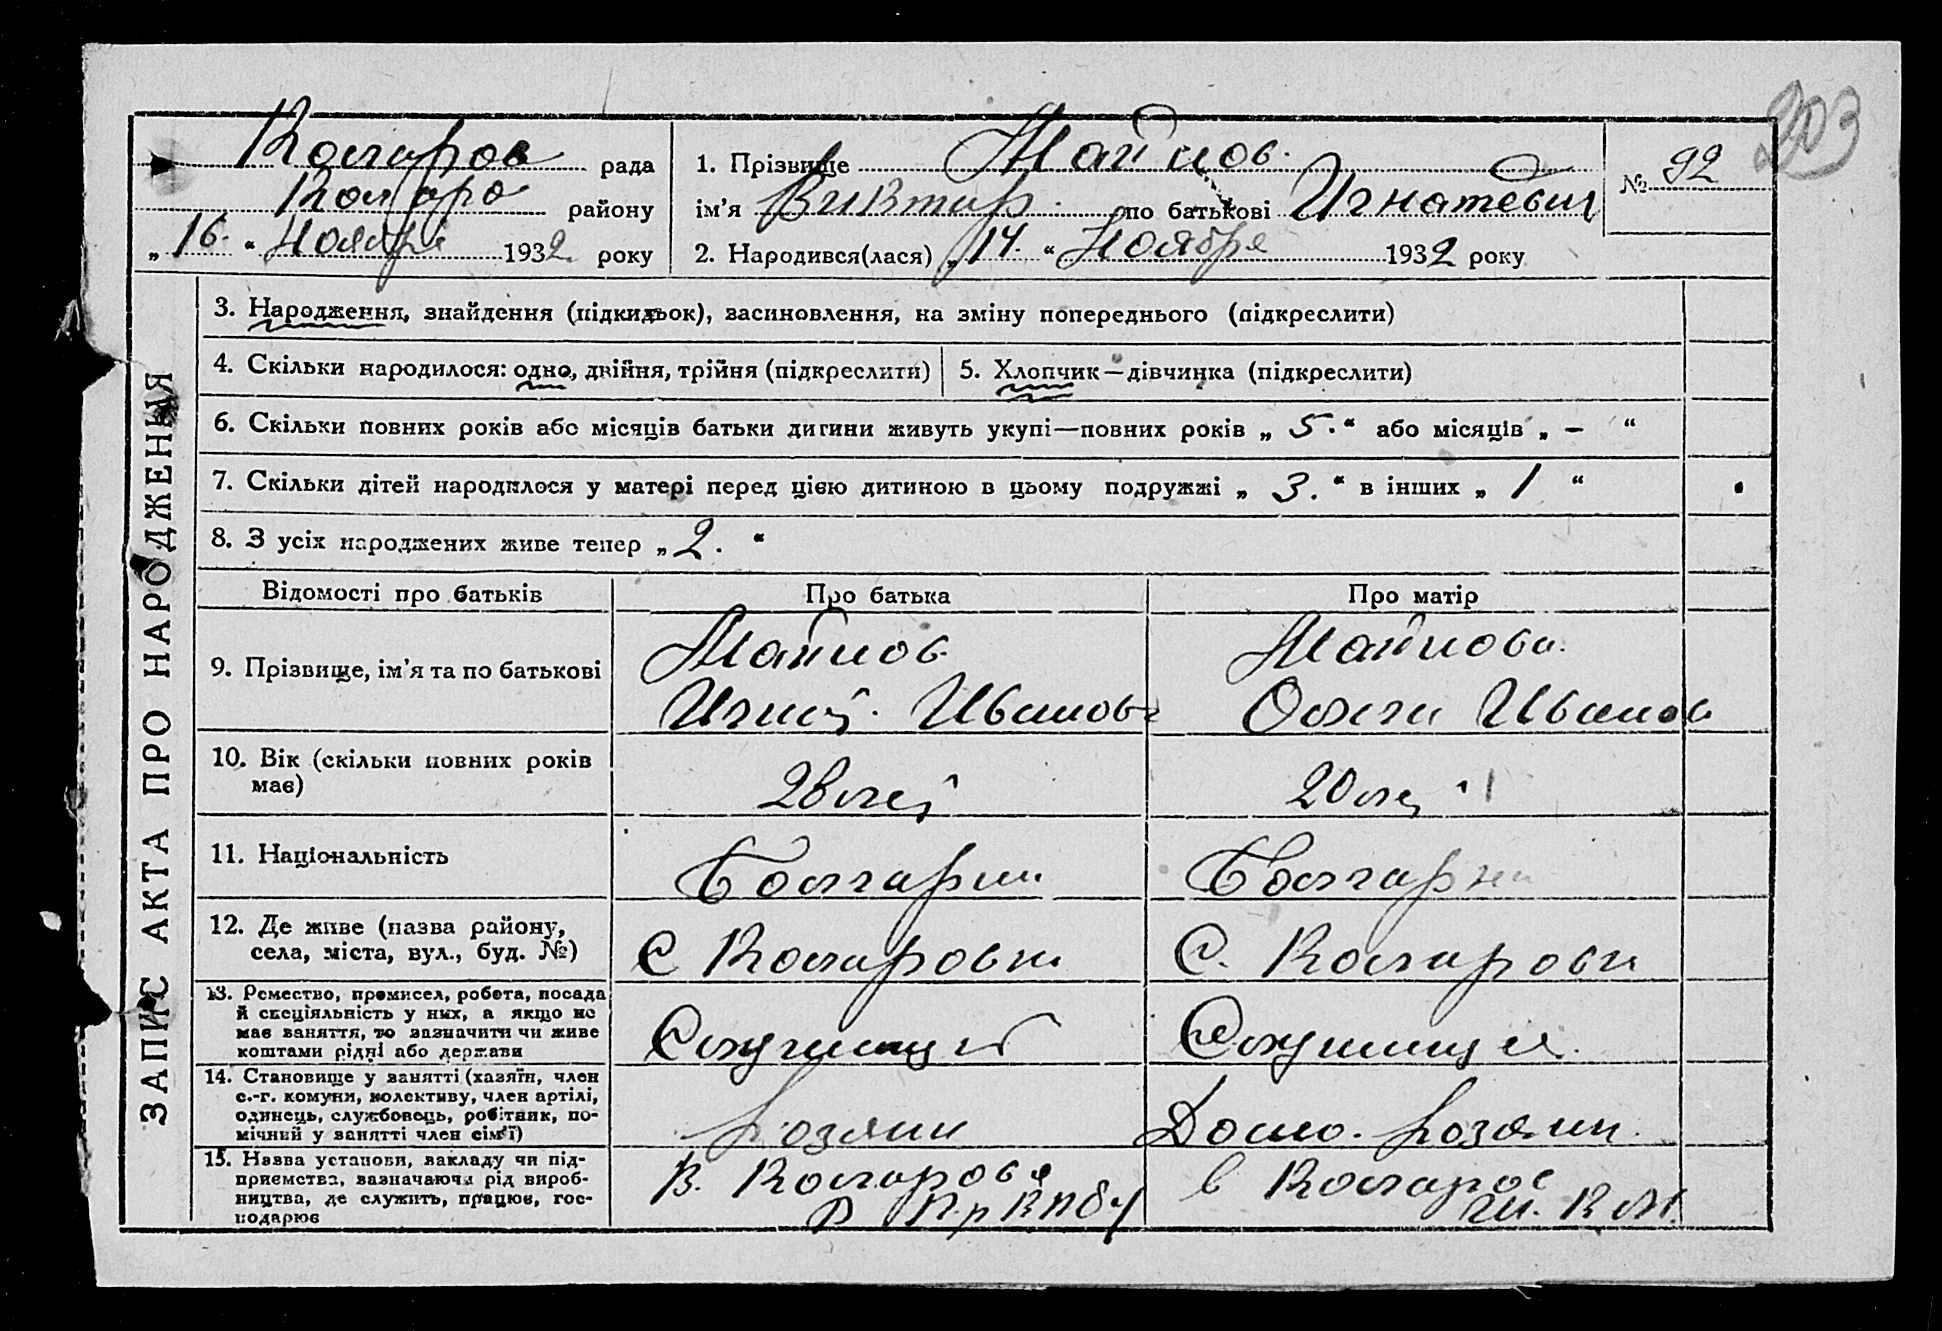 203
Коларов рада
Коларо району
„ 16. “ Ноября 1932 року
1. Прізвище Майнов.
ім'я Виктор. по батькові Игнатевич
2. Народився(лася) „ 14. “ Ноября 1932 року
№ 92
ЗАПИС АКТА ПРО НАРОДЖЕННЯ
3. Народження, знайдення (підкидьок), засиновлення, на зміну попереднього (підкреслити)
4. Скільки народилося: одно, двійня, трійня (підкреслити)
5. Хлопчик—дівчинка (підкреслити)
6. Скільки повних років або місяців батьки дитини живуть укупі—повних років „ 5. “ або місяців „ – “
7. Скільки дітей народилося у матері перед цією дитиною в цьому подружжі „ 3. “ в інших „ 1 “
8. З усіх народжених живе тепер „ 2. “
Відомості про батьків
Про батька
Про матір
9. Прізвище, ім'я та по батькові
Майнов
Игнат. Иванов
Майнова.
Ольга Иванов
10. Вік (скільки повних років
має)
28 лет
20 лет
11. Національність
Болгарин
Болгарки
12. Де живе (назва району,
села, міста, вул., буд. №)
С Коларовки
С. Коларовки
13. Ремество, промисел, робота, посада
й спеціяльність у них, а якщо не
має заняття, то зазначити чи живе
коштами рідні або держави
Служащий
Служащия.
14. Становище у занятті (хазяїн, член
с.-г. комуни, колективу, член артілі,
одинець, службовець, робітник, по-
мічний у занятті член сім'ї)
хозяин
Домо. хозяин.
15. Назва установи, закладу чи під-
приємства, зазначаючи рід вироб-
ництва, де служить, працює, гос-
подарює
В. Коларовке
КПбУ
в Коларов